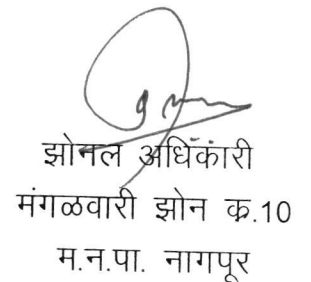 झोनल अधिकारी
मंगळवारी झोन क्र.10
म.न.पा. नागपूर